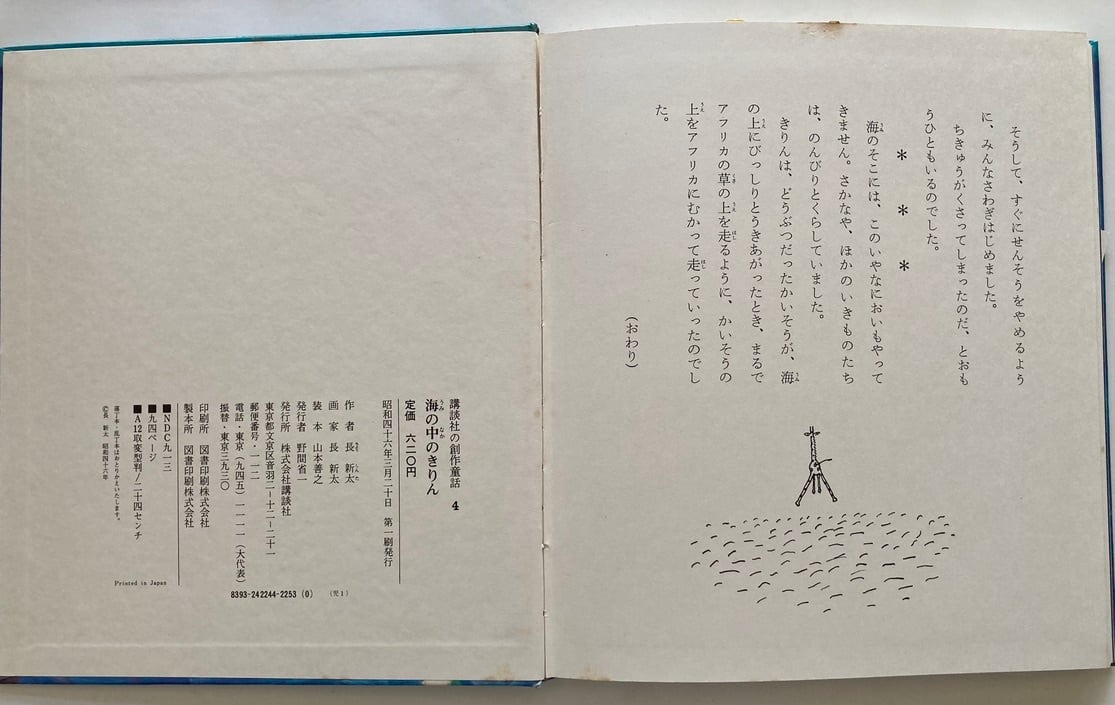 そうして、すぐにせんそうをやめるよう
に、みんなさわぎはじめました。
ちきゅうがくさってしまったのだ、とおも
うひともいるのでした。
＊　＊　＊
海のそこには、このいやなにおいもやって
きません。さかなや、ほかのいきものたち
は、のんびりとくらしていました。
きりんは、どうぶつだったかいそうが、海
の上にびっしりとうきあがったとき、まるで
アフリカの草の上を走るように、かいそうの
上をアフリカにむかって走っていったのでし
た。
（おわり）
講談社の創作童話　4
海の中のきりん
定価　六二〇円
昭和四十六年三月二十日　第一刷発行
作　者　長　新太
画　家　長　新太
装　本　山本善之
発行者　野間省一
発行所　株式会社講談社
東京都文京区音羽二ー十二ー二十一
郵便番号・一一二
電話・東京（九四五）一一一一（大代表）
振替・東京三九三〇
印刷所　図書印刷株式会社
製本所　図書印刷株式会社
■NDC九一三
■九四ページ
■A12取変型判/二十四センチ
落丁本・乱丁本はおとりかえいたします。
©長　新太　昭和四十六年
Printed in Japan
8393-242244-2253 (0)　(児1)